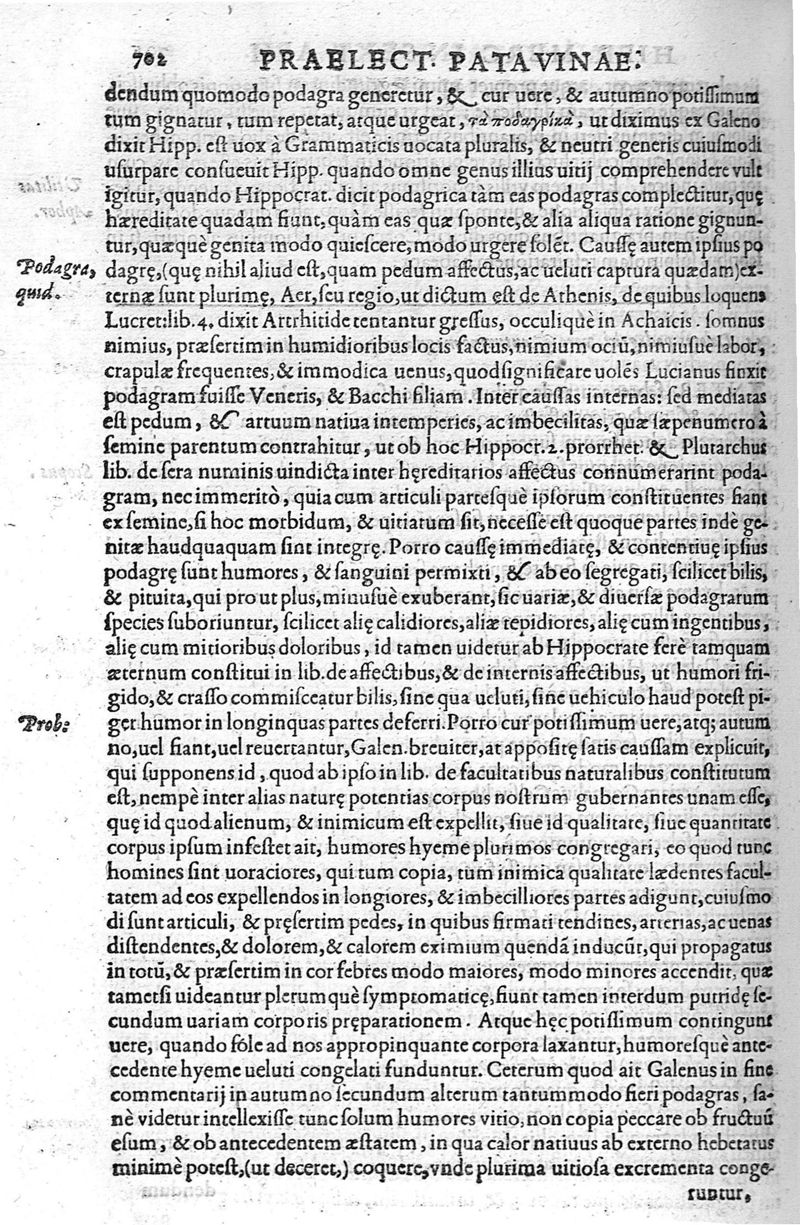 702 PRAELECT. PATAVINAE.
dendum quomodo podagra generetur, & cur uere, & autumno potissimum
tum gignatur, tum repetat, atque urgeat, τὰ ποδαγρικὰ, ut diximus ex Galeno
dixit Hipp. est uox à Grammaticis uocata pluralis, & neutri generis cuiusmodi
usurpare consueuit Hipp. quando omne genus illius uitij comprehendere vult
igitur, quando Hippocrat. dicit podagrica tàm eas podagras complectitur, quę
hæreditate quadam fiunt, quàm eas quæ sponte, & alia aliqua ratione gignun-
tur, quæquè genita modo quiescere, modo urgere solẽt. Caussę autem ipsius po
Podagra, quid.
dagrę, (quę nihil aliud est, quam pedum affectus, ac ueluti captura quædam) ex-
ternæ sunt plurimę, Aer, seu regio, ut dictum est de Athenis, de quibus loquens
Lucret: lib. 4, dixit Artrhitide tentantur gressus, occuliquè in Achaicis. somnus
nimius, præsertim in humidioribus locis factus, nimium ociũ, nimiusuè labor,
crapulæ frequentes, & immodica uenus, quod significare uolẽs Lucianus finxit
podagram fuisse Veneris, & Bacchi filiam. Inter caussas internas: sed mediatas
est pedum, & artuum natiua intemperies, ac imbecilitas, quæ sæpenumero à
semine parentum contrahitur, ut ob hoc Hippocr. 2. prorrhet. & Plutarchus
lib. de sera numinis uindicta inter hęreditarios affectus connumerarint poda-
gram, nec immeritò, quia cum articuli partesquè ipsorum constituentes fiant
ex semine, si hoc morbidum, & uitiatum sit, necesse est quoque partes indè ge-
nitæ haudquaquam sint integrę. Porro caussę immediatę, & contentiuę ipsius
podagrę sunt humores, & sanguini permixti, & ab eo segregati, scilicet bilis,
& pituita, qui pro ut plus, minusuè exuberant, sic uariæ, & diuersæ podagrarum
species suboriuntur, scilicet alię calidiores, aliæ tepidiores, alię cum ingentibus,
alię cum mitioribus doloribus, id tamen uidetur ab Hippocrate ferè tamquam
æternum constitui in lib. de affectibus, & de internis affectibus, ut humori fri-
gido, & crasso commisceatur bilis, sine qua ueluti, sine uehiculo haud potest pi-
Prob:
ger humor in longinquas partes deferri. Porro cur potissimum uere, atq; autum
no, uel fiant, uel reuertantur, Galen. breuiter, at appositę satis caussam explicuit,
qui supponens id, quod ab ipso in lib. de facultatibus naturalibus constitutum
est, nempè inter alias naturę potentias corpus nostrum gubernantes unam esse,
quę id quod alienum, & inimicum est expellit, siue id qualitate, siue quantitate
corpus ipsum infestet ait, humores hyeme plurimos congregari, eo quod tunc
homines sint uoraciores, qui tum copia, tum inimica qualitate lædentes facul-
tatem ad eos expellendos in longiores, & imbecilliores partes adigunt, cuiusmo
di sunt articuli, & pręsertim pedes, in quibus firmati tendines, arterias, ac uenas
distendentes, & dolorem, & calorem eximium quendã inducũt, qui propagatus
in totũ, & præsertim in cor febres modo maiores, modo minores accendit, quæ
tametsi uideantur plerumquè symptomaticę, fiunt tamen interdum putridę se-
cundum uariam corporis pręparationem. Atque hęc potissimum contingunt
uere, quando sole ad nos appropinquante corpora laxantur, humoresquè ante-
cedente hyeme ueluti congelati funduntur. Ceterum quod ait Galenus in fine
commentarij in autumno secundum alterum tantummodo fieri podagras, sa-
nè videtur intellexisse tunc solum humores vitio, non copia peccare ob fructuũ
esum, & ob antecedentem æstatem, in qua calor natiuus ab externo hebetatus
minimè potest, (ut deceret,) coquere, vnde plurima uitiosa excrementa conge-
runtur,